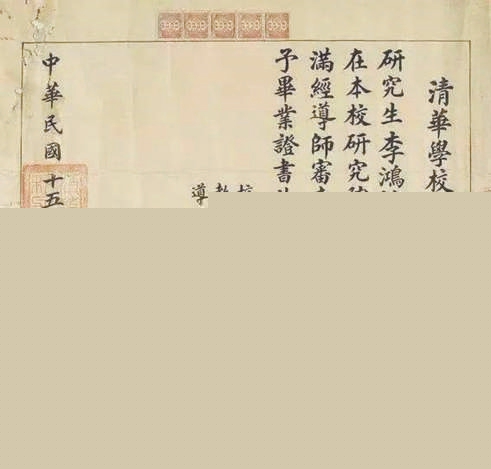 清華學校
研究生李鴻
在本校研究
滿經導師審
予畢業證書
校
教
導
中華民國十五